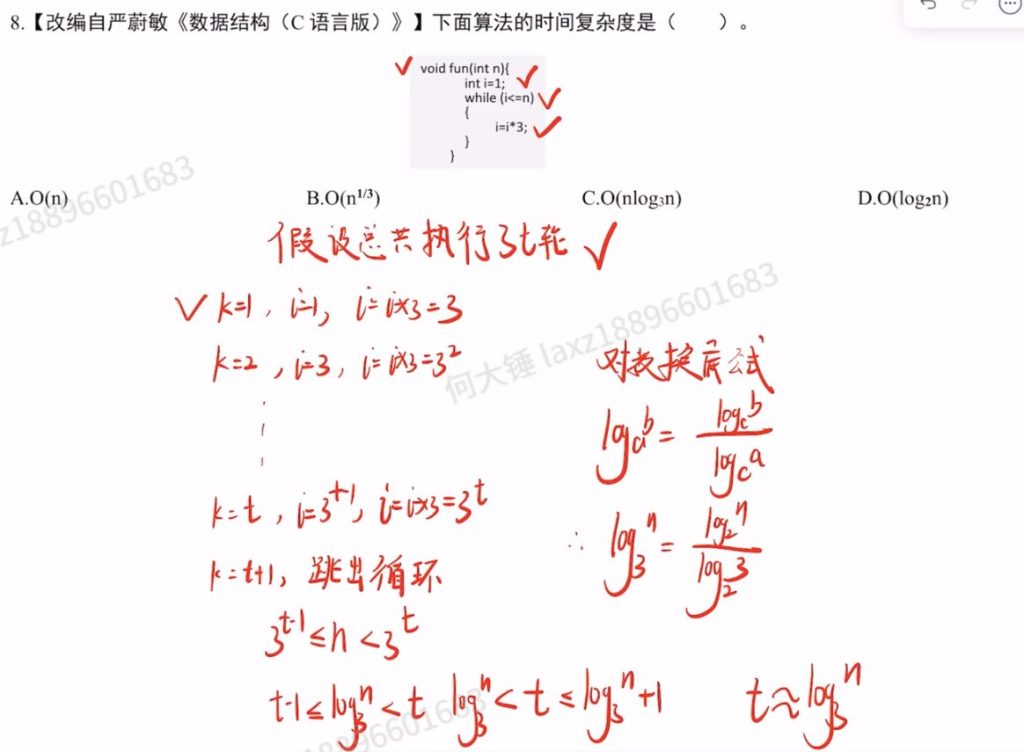 8.【改编自严蔚敏《数据结构（C 语言版）》】下面算法的时间复杂度是（ ）。
void fun(int n){
int i=1;
while (i<=n)
{
i=i*3;
}
}
A.O(n) B.O(n^1/3) C.O(nlog₃n) D.O(log₂n)
假设总共执行了t轮
k=1, i=1, i=i×3=3
k=2, i=3, i=i×3=3²
对数换底公式
log_a^b = log_c^b / log_c^a
k=t, i=3^t-1, i=i×3=3^t
∴ log_3^n = log_2^n / log_2^3
k=t+1, 跳出循环
3^t-1 ≤ n < 3^t
t-1 ≤ log_3^n < t log_3^n < t ≤ log_3^n +1 t≈log_3^n
何大锤 laxz18896601683